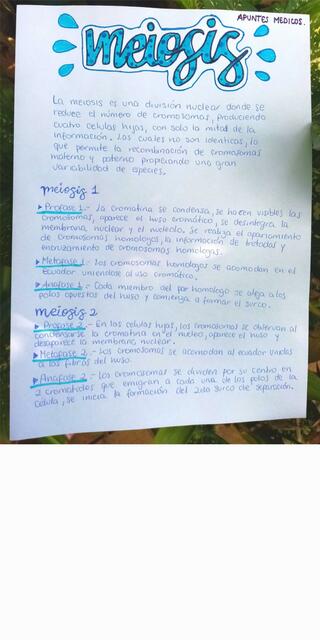 APUNTES MEDICOS.
meiosis
La meiosis es una división nuclear donde se
reduce el número de cromosomas, produciendo
cuatro celulas hijas, con solo la mitad de la
información. Las cuales no son identicas, lo
que permite la recombinación de cromosomas
materno y paterno propeciando una gran
variabilidad de especies.
meiosis 1
▸ Profase 1.- La cromatina se condensa, se hacen visibles las
cromosomas, aparece el huso cromático, se desintegra la
membrana, nuclear y el nucleolo. Se realiza el apariamiento
de cromosomas homologos, la información de tetradas y
entruzamiento de cromosomas homologas.
▸ Metafase 1.- Los cromosomas homologos se acomodan en el
Ecuador uniendose al uso cromático.
▸ Anafase 1.- Cada miembro del par homólogo se aleja a los
polos opuestos del huso y comienza a formar el surco.
meiosis 2
▸ Profase 2.- En las celulas hijas, los cromosomas se observan al
condensarse la cromatina en el nucleo, aparece el huso y
desaparece la membrana nuclear.
▸ Metafase 2.- Los cromosomas se acomodan al ecuador unidos
a las fibras del huso.
▸ Anafase 2.- Los cromosomas se dividen por su centro en
2 cromatidas que emigran a cada uno de los polos de la
celula, se inicia la formación del 2do surco de separación.